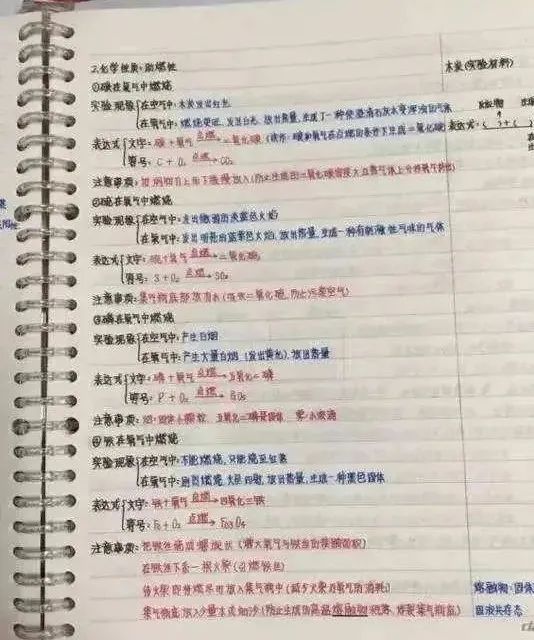 2.化学性质:助燃性
木炭(实验材料)
①碳在氧气中燃烧
实验现象 在空气中:木炭发出红光
在氧气中:燃烧更旺、发出白光、放出热量、生成了一种使澄清石灰水变浑浊的气体
表达式 文字:碳+氧气 点燃→ 二氧化碳(读作:碳和氧气在点燃的条件下生成二氧化碳) 表达式:( )+(
符号:C+O₂ 点燃→ CO₂
注意事项:由上而下缓慢放入(防止生成的二氧化碳
②硫在氧气中燃烧
实验现象 在空气中:发出微弱的淡蓝色火焰
在氧气中:发出明亮的蓝紫色火焰、放出热量、生成一种有刺激性气味的气体
表达式 文字:硫+氧气 点燃→ 二氧化硫
符号:S+O₂ 点燃→ SO₂
注意事项:集气瓶底部放清水(吸收二氧化硫,防止污染空气)
③磷在氧气中燃烧
实验现象 在空气中:产生白烟
在氧气中:产生大量白烟(发出黄光)、放出热量
表达式 文字:磷+氧气 点燃→ 五氧化二磷
符号:P+O₂ 点燃→ P₂O₅
注意事项:烟:固体小颗粒、五氧化二磷是固体 雾:小液滴
④铁在氧气中燃烧
实验现象 在空气中:不能燃烧、只能烧至红热
在氧气中:剧烈燃烧、火星四射、放出热量、生成一种黑色固体
表达式 文字:铁+氧气 点燃→ 四氧化三铁
符号:Fe+O₂ 点燃→ Fe₃O₄
注意事项:把铁丝绕成螺旋状(增大氧气与铁丝的接触面积)
在铁丝下系一根火柴(引燃铁丝)
待火柴即将燃尽时放入集气瓶中(减少火柴对氧气的消耗)
集气瓶底放入少量水或细沙(防止生成的高温熔融物溅落、炸裂集气瓶底)
熔融物:固体
固液共存态